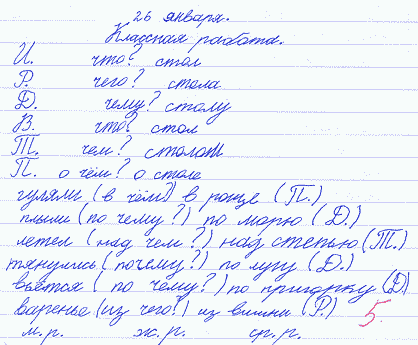 26 января.
Классная работа.
И. что? стол
Р. чего? стола
Д. чему? столу
В. что? стол
Т. чем? столом
П. о чём? о столе
гуляли (в чём?) в роще (П.)
плыли (по чему?) по морю (Д.)
летел (над чем?) над степью (Т.)
тянулись (по чему?) по лугу (Д.)
вьётся (по чему?) по пригорку (Д)
варенье (из чего?) из вишни (Р.) 5
м.р. ж.р. ср.р.